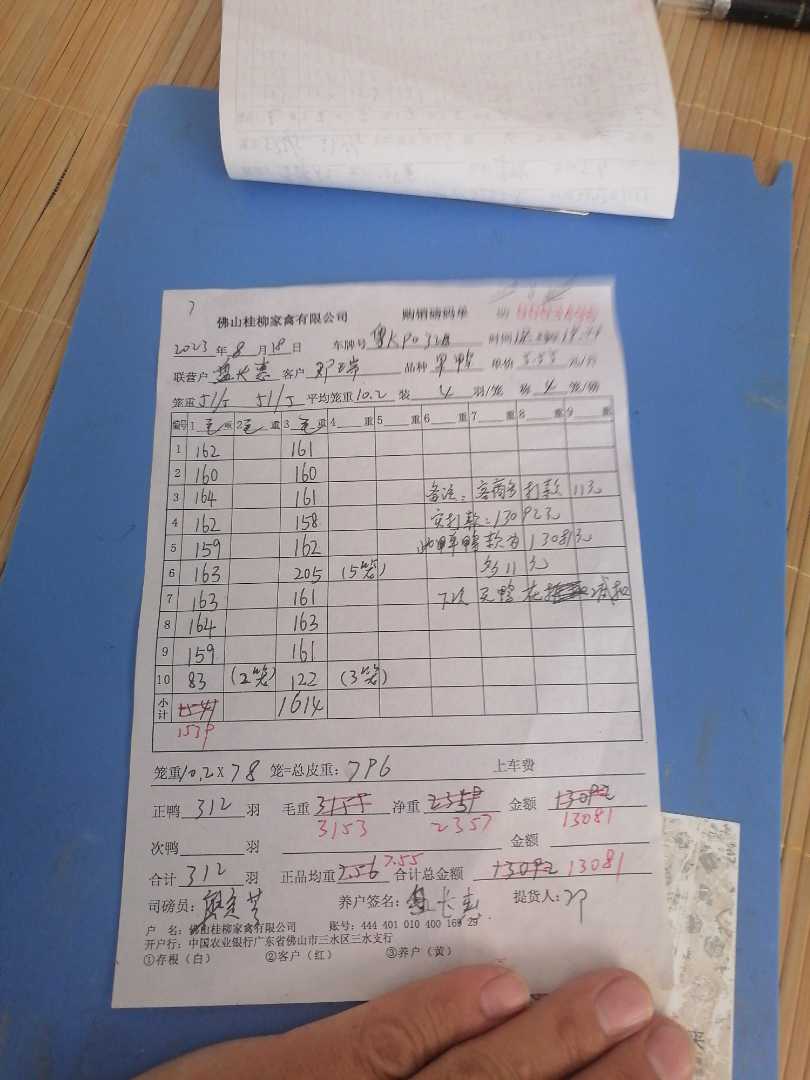 佛山桂柳家禽有限公司 购销磅码单
2023年8月18日 车牌号 时间
联营户 客户 邓 品种 单价
笼重51/5 51/5 平均笼重10.2 装4羽/笼 称4笼/磅
编号 1毛重 2毛重 3毛重 4重 5重 6重 7重 8重 9重
1 162 161
2 160 160
3 164 161 备注：客商多打款11元
4 162 158 实打款：13092元
5 159 162 此单鸭款为13081元
6 163 205 (5笼) 多11元
7 163 161 下次买鸭在减扣
8 164 163
9 159 161
10 83 (2笼) 122 (3笼)
小计 1541 1614
1539
笼重10.2×78笼=总皮重：796 上车费
正鸭312羽 毛重 净重 金额13092
3153 2357 13081
次鸭羽 金额
合计312羽 正品均重2.56 7.55 合计总金额13092 13081
司磅员： 养户签名： 提货人：邓
户 名：佛山桂柳家禽有限公司 账号：444 401 010 400 169 29
开户行：中国农业银行广东省佛山市三水区三水支行
①存根（白） ②客户（红） ③养户（黄）